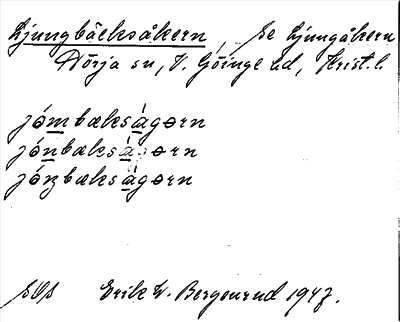 Ljungbäcksåkern, se Ljungåkern
Nörja sn, V. Göinge hd, Krist. l.
jómbækságørn
jónbækságørn
jóŋbækságørn
SOS Erik W. Bergenrud 1947.